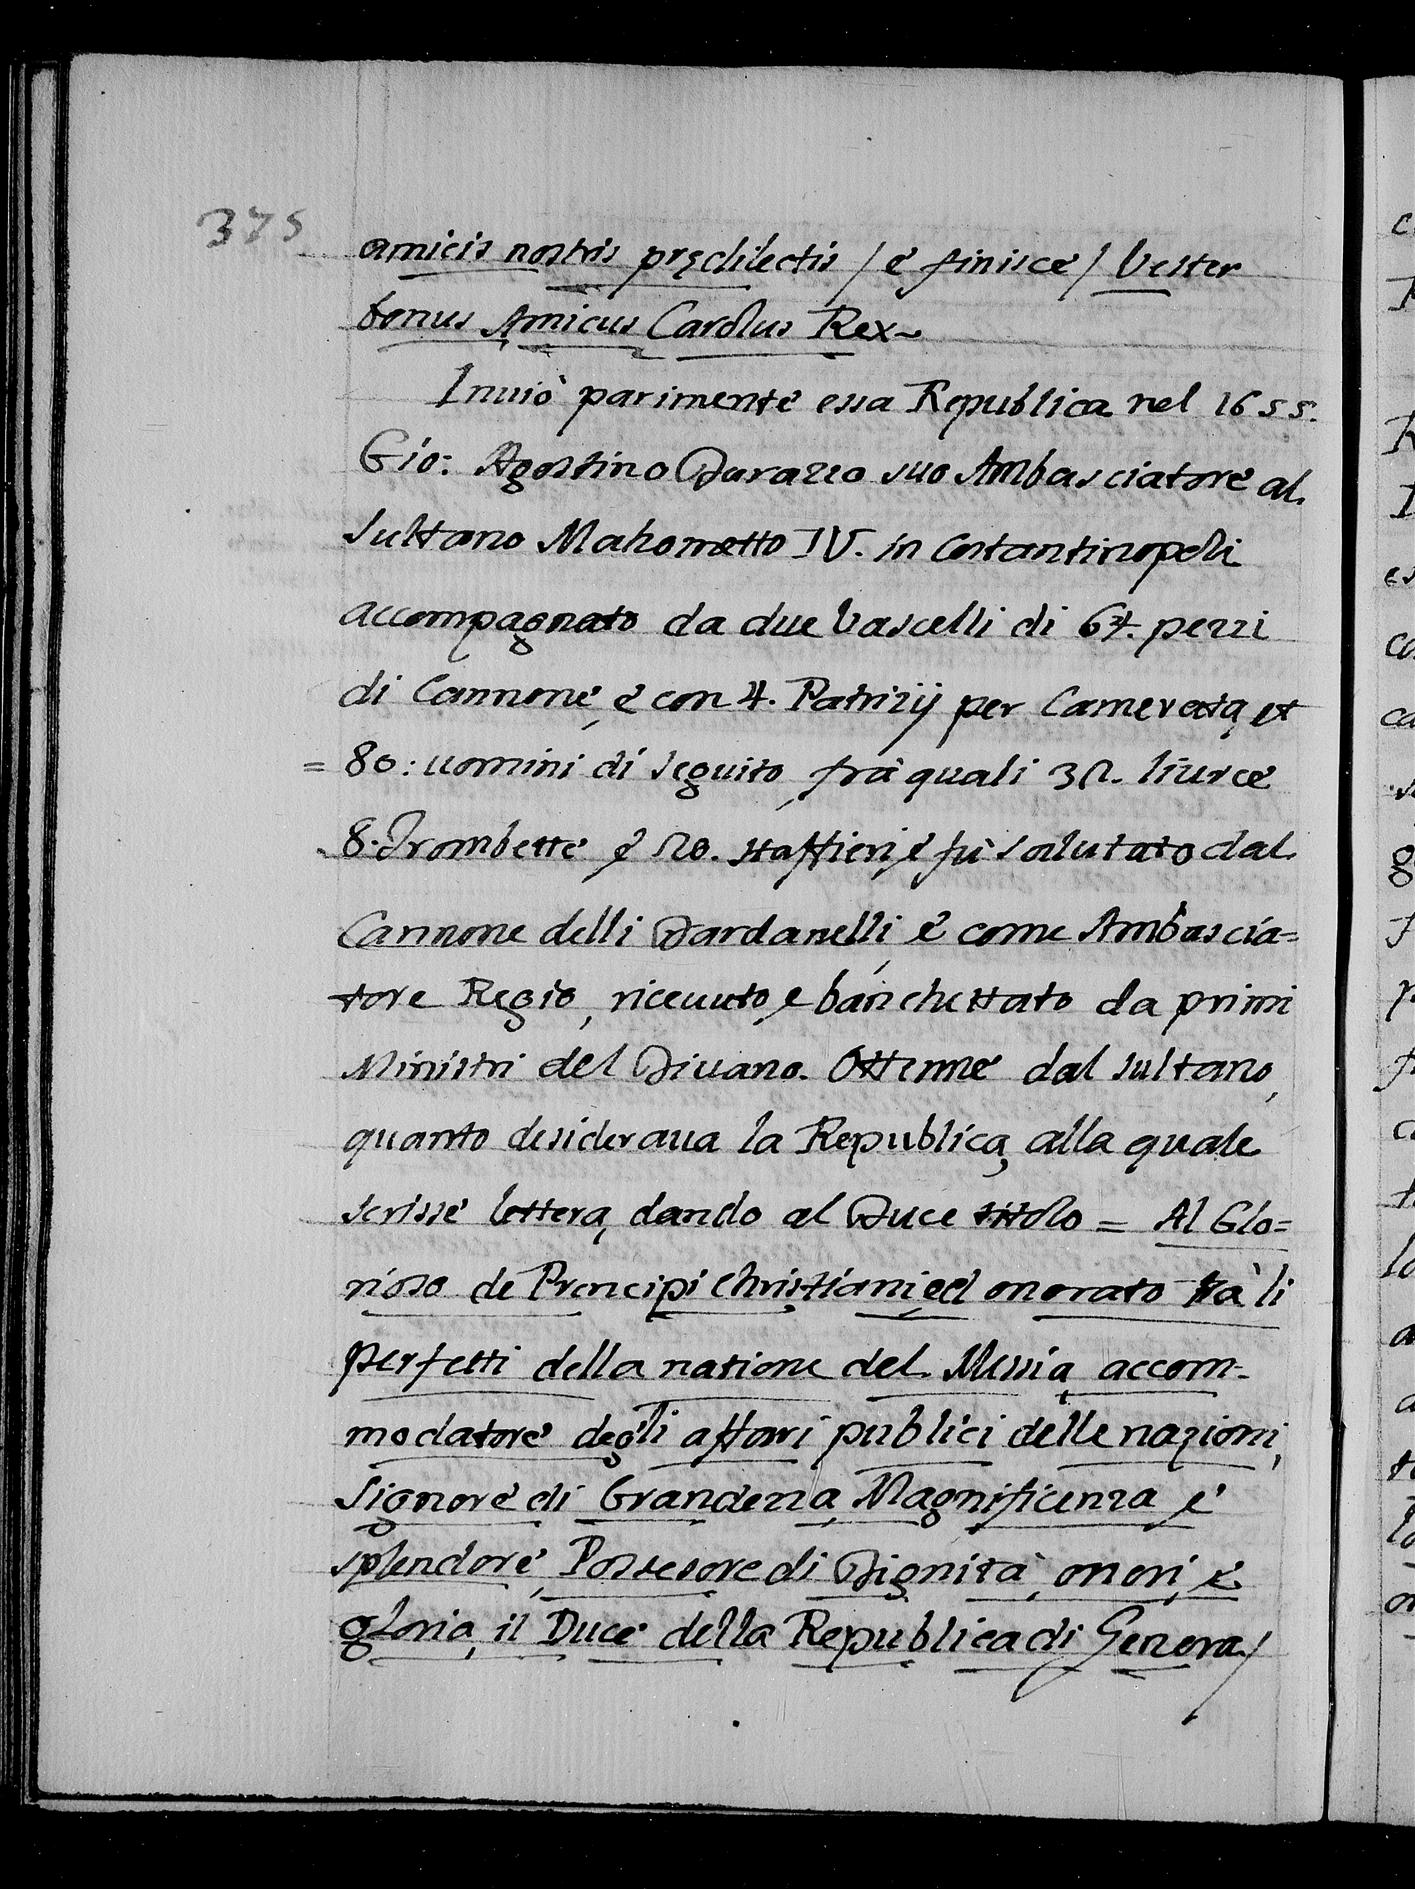 375
amicis nostris prędilectis / e finisce / Vester
bonus Amicus Carolus Rex~
Inuiò parimente essa Republica nel 1655.
Gio: Agostino Durazzo suo Ambasciatore al
Sultano Mahometto IV. in Costantinopoli
accompagnato da due Vascelli di 64. pezzi
di Cannone, e con 4. Patrizij per Camerata, et
= 80: uomini di seguito, frà quali 32. liuree
8. Trombette e 20. staffieri, e fù salutato dal
Cannone delli Dardanelli, e come Ambascia=
tore Regio, riceuuto, e banchettato da primi
Ministri del Diuano. Ottenne dal Sultano,
quanto desideraua la Republica, alla quale
scrisse lettera, dando al Duce titolo = Al Glo=
rioso de Prencipi Christiani, ed onorato trà li
perfetti della natione del Messia, accom-
modatore degli affari publici delle nazioni,
Signore di Grandezza, Magnificenza, e
splendore, Possesore di Dignità, onori, e
gloria, il Duce della Republica di Genova /